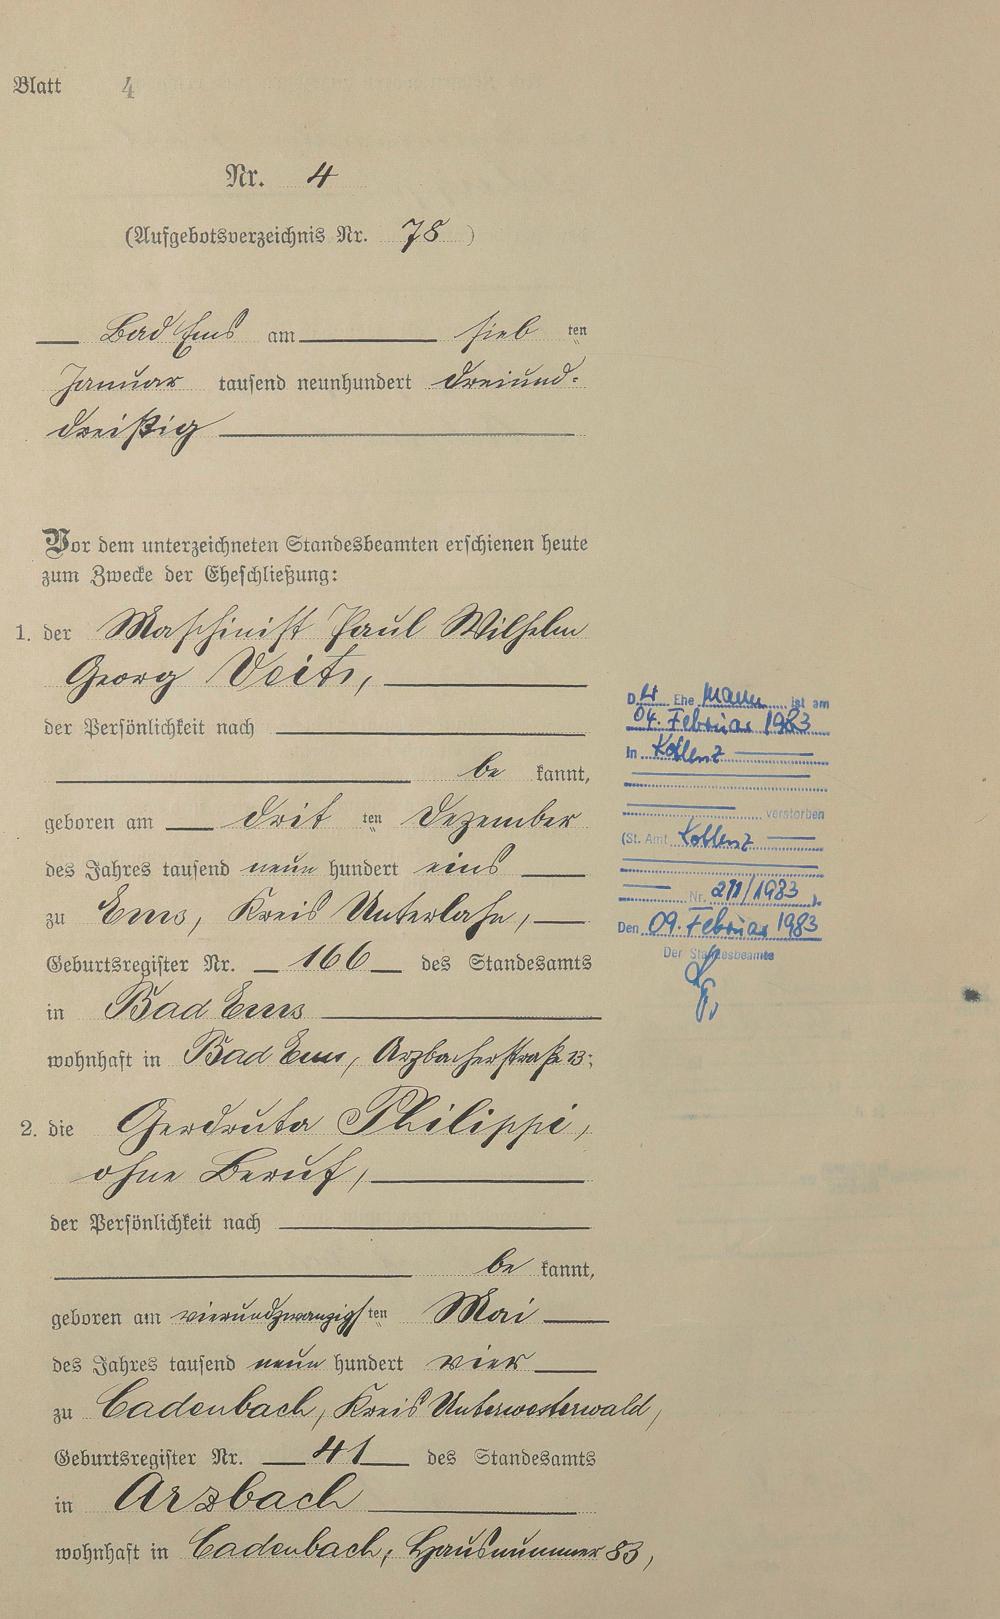 Blatt 4
Nr. 4
(Aufgebotsverzeichnis Nr. 78)
Bad Ems am sieb ten
Januar tausend neunhundert dreiund-
dreißig
Vor dem unterzeichneten Standesbeamten erschienen heute
zum Zwecke der Eheschließung:
1. der Maschinist Paul Wilhelm
Georg Veit,
der Persönlichkeit nach
be kannt,
geboren am drit ten Dezember
des Jahres tausend neun hundert eins
zu Ems, Kreis Unterlahn,
Geburtsregister Nr. 166 des Standesamts
in Bad Ems
wohnhaft in Bad Ems, Arzbacherstraße 13;
2. die Gerdruta Philippi,
ohne Beruf,
der Persönlichkeit nach
be kannt,
geboren am vierundzwanzigs ten Mai
des Jahres tausend neun hundert vier
zu Cadenbach, Kreis Unterwesterwald,
Geburtsregister Nr. 41 des Standesamts
in Arzbach
wohnhaft in Cadenbach, Hausnummer 83,
Der Ehe mann ist am
04. Februar 1983
In Koblenz
verstorben
(St. Amt Koblenz
Nr. 271/1983 ).
Den 09. Februar 1983
Der Standesbeamte